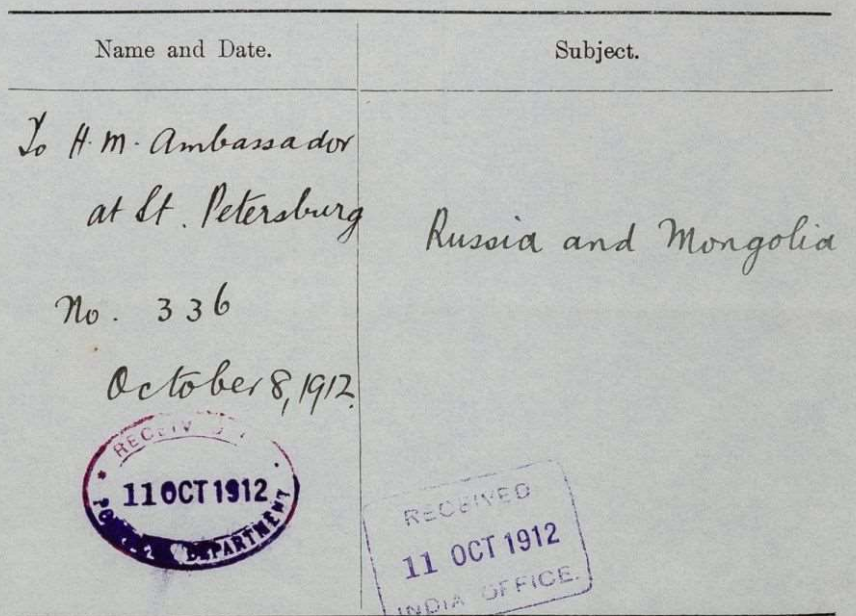 Name and Date.
Subject.
To H.M. Ambassador
at St. Petersburg
No. 336
October 8, 1912.
Russia and Mongolia
RECEIVED
11 OCT 1912
DEPARTMENT
RECEIVED
11 OCT 1912
INDIA OFFICE.